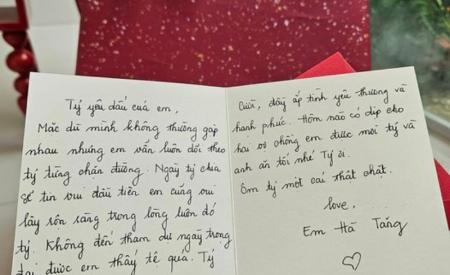 Tý yêu dấu của em,
Mặc dù mình không thường gặp
nhau nhưng em vẫn luôn dõi theo
tý từng chặn đường. Ngày tý chia
sẻ tin vui đầu tiên em cũng vui
lây rộn ràng trong lòng luôn đó
tý. Không đến tham dự ngày trong
đại được em thấy tệ quá. Tý
cười, đầy ắp tình yêu thương và
hạnh phúc. Hôm nào có dịp cho
hai vợ chồng em được mời tý và
anh ăn tối nhé Tý ơi.
Ôm tý một cái thật chặt.
love,
Em Hà Tăng